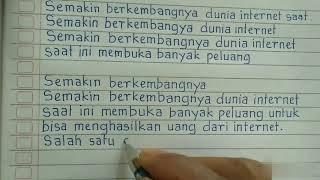 Semakin berkembangnya dunia internet saat
Semakin berkembangya dunia internet
Semakin berkembangnya dunia internet
saat ini membuka banyak peluang
Semakin berkembangnya
Semakin berkembangnya dunia internet
saat ini membuka banyak peluang untuk
bisa menghasilkan uang dari internet.
Salah satu